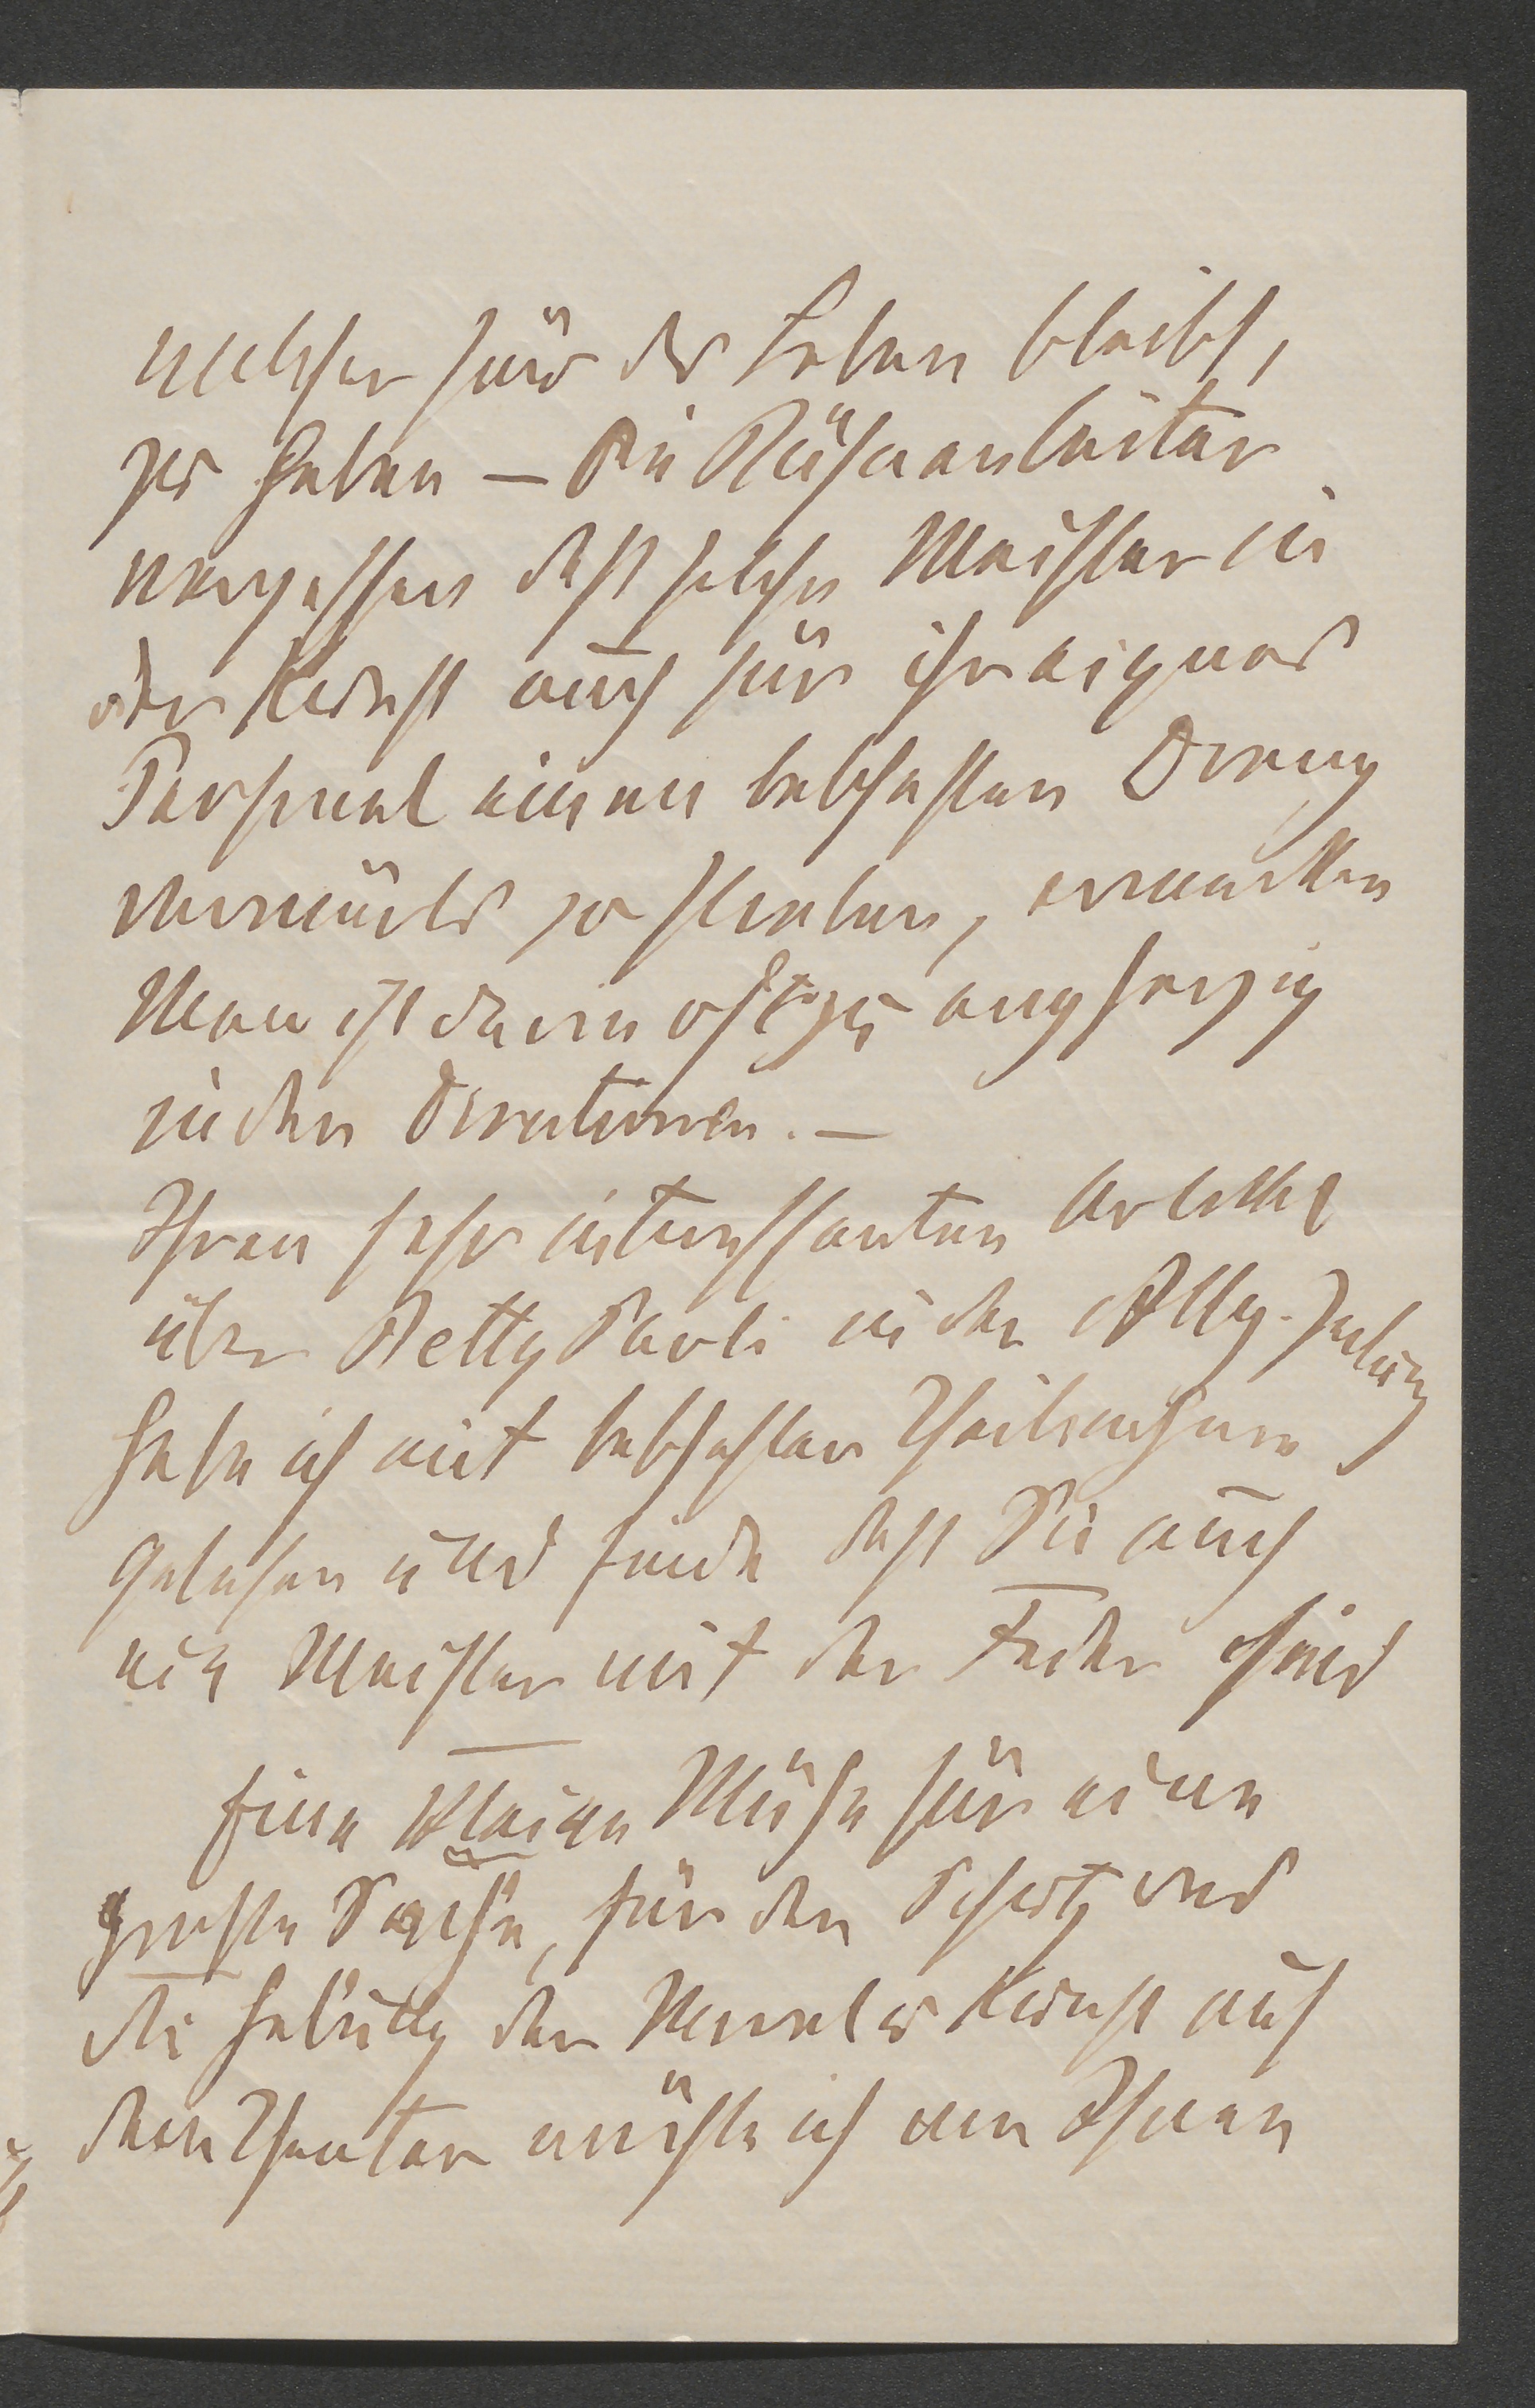 welcher für das Leben bleibt,
zu haben – Die Bühnenleiter
vergessen daß solche Meister in
der Kunst auch für ihr eignes
Personal einen lebhaften Drang
vorwärts zu streben, erwecken
Man ist darin oft zu engherzig
in den Directionen. –
Ihren sehr interessanten Artikel
über Betty Paoli in der Allg. Zeitung
habe ich mit lebhafter Theilnahme
gelesen und finde daß Sie auch
ein Meister mit der Feder sind
Eine kleine Mühe für eine
große Sache, für den Schutz und
die Hebung der Kunst auf
dem Theater möchte ich von Ihnen